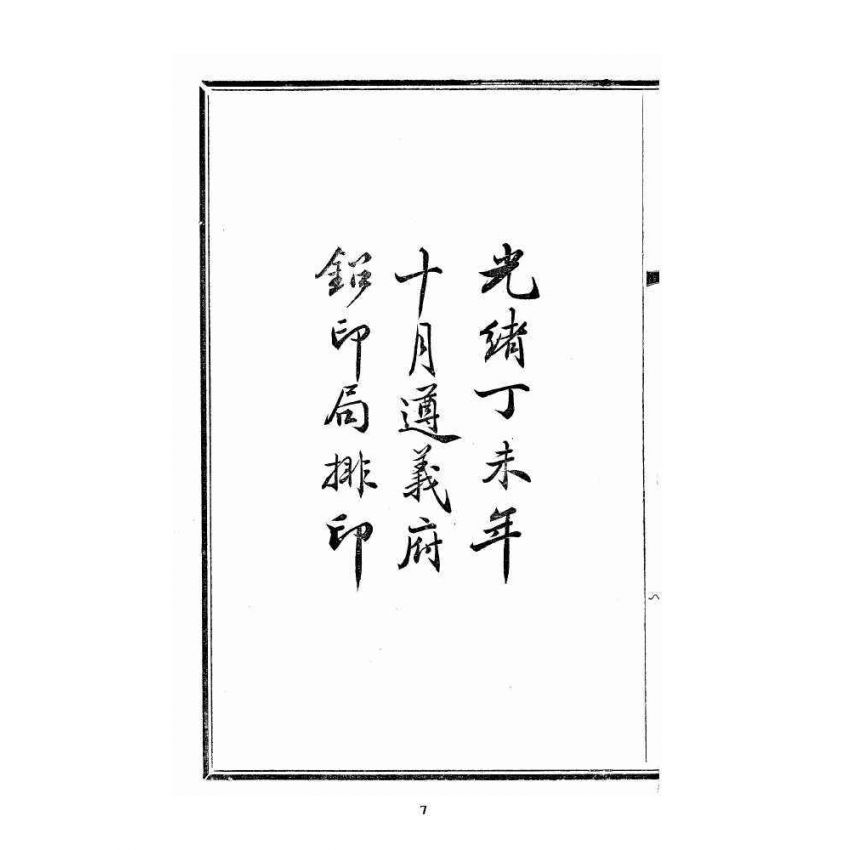 光緒丁未年
十月遵義府
鉛印局排印
7